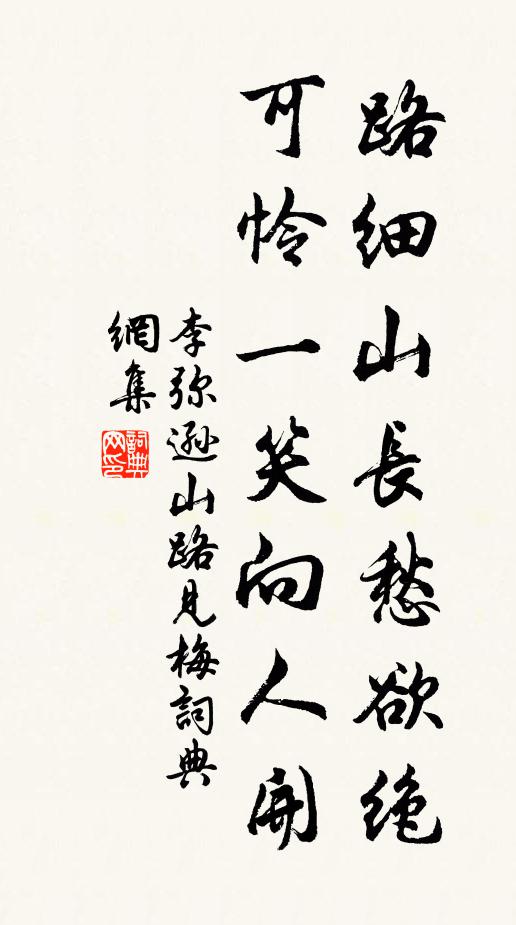 路细山長愁欲絶
可怜一笑向人開
李弥遜山路見梅詞典
網集
詞典
网印